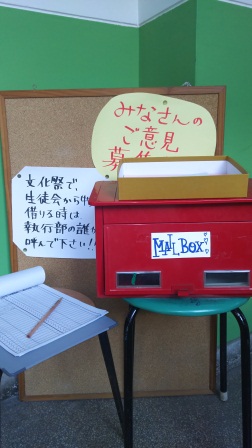 みなさんの
ご意見
募
文化祭で、
生徒会から
借りる時は
執行部の誰か
呼んで下さい!!
MAILBOX!!